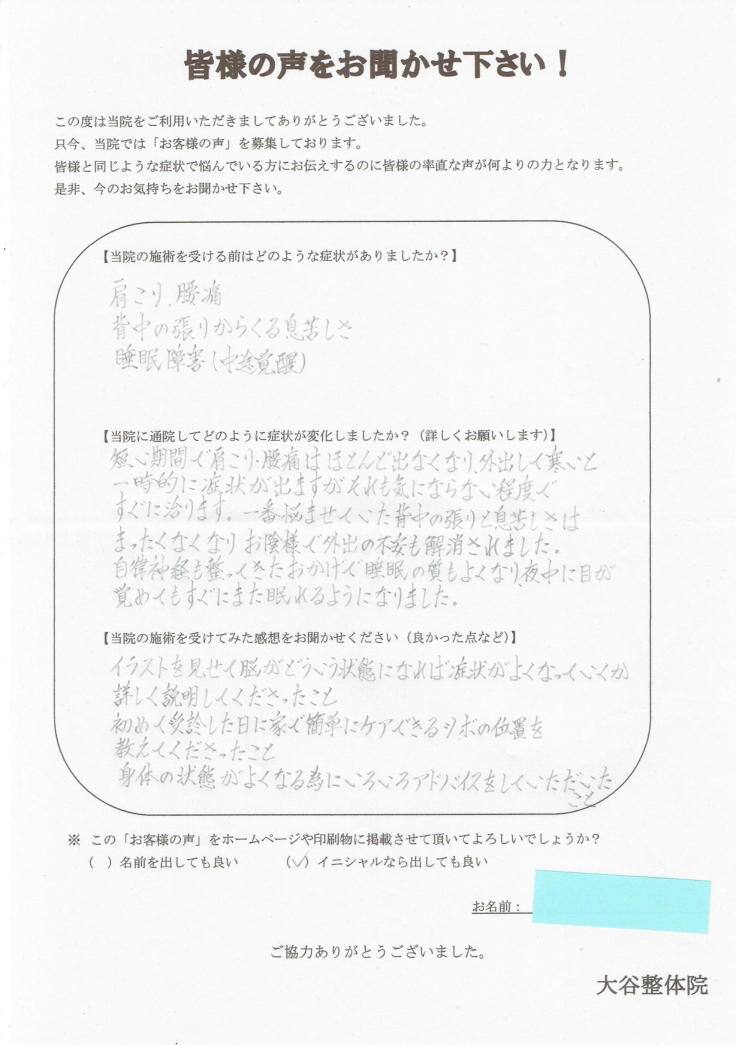 皆様の声をお聞かせ下さい！
この度は当院をご利用いただきましてありがとうございました。
只今、当院では「お客様の声」を募集しております。
皆様と同じような症状で悩んでいる方にお伝えするのに皆様の率直な声が何よりの力となります。
是非、今のお気持ちをお聞かせ下さい。
【当院の施術を受ける前はどのような症状がありましたか？】
肩こり、腰痛
背中の張りからくる息苦しさ
睡眠障害(中途覚醒)
【当院に通院してどのように症状が変化しましたか？（詳しくお願いします）】
短い期間で肩こり・腰痛はほとんど出なくなり、外出して寒いと
一時的に症状が出ますがそれも気にならない程度で
すぐに治ります。一番悩ませていた背中の張りと息苦しさは
まったくなくなりお陰様で外出の不安も解消されました。
自律神経も整ってきたおかげで睡眠の質もよくなり夜中に目が
覚めてもすぐにまた眠れるようになりました。
【当院の施術を受けてみた感想をお聞かせください（良かった点など）】
イラストを見せて脳がどういう状態になれば症状がよくなっていくか
詳しく説明してくださったこと
初めて受診した日に家で簡単にケアできるツボの位置を
教えてくださったこと
身体の状態がよくなる為にいろいろアドバイスをしていただいた
こと
※ この「お客様の声」をホームページや印刷物に掲載させて頂いてよろしいでしょうか？
（ ）名前を出しても良い （✓）イニシャルなら出しても良い
お名前：
ご協力ありがとうございました。
大谷整体院